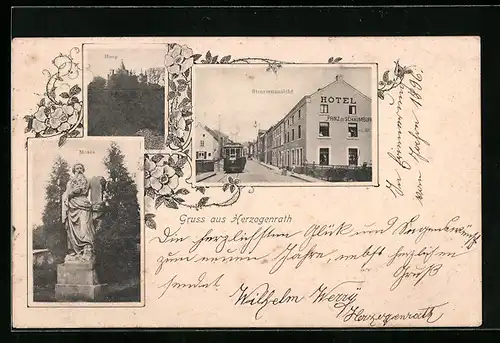 Burg
Strassenansicht
HÔTEL
PRINZ v. SCHAUMBURG
Moses
Gruss aus Herzogenrath
Die herzlichsten Glück und Segenswünsche
zum neuen Jahre, nebst herzlichen
Gruß
sendet
Wilhelm
Herzogenrath